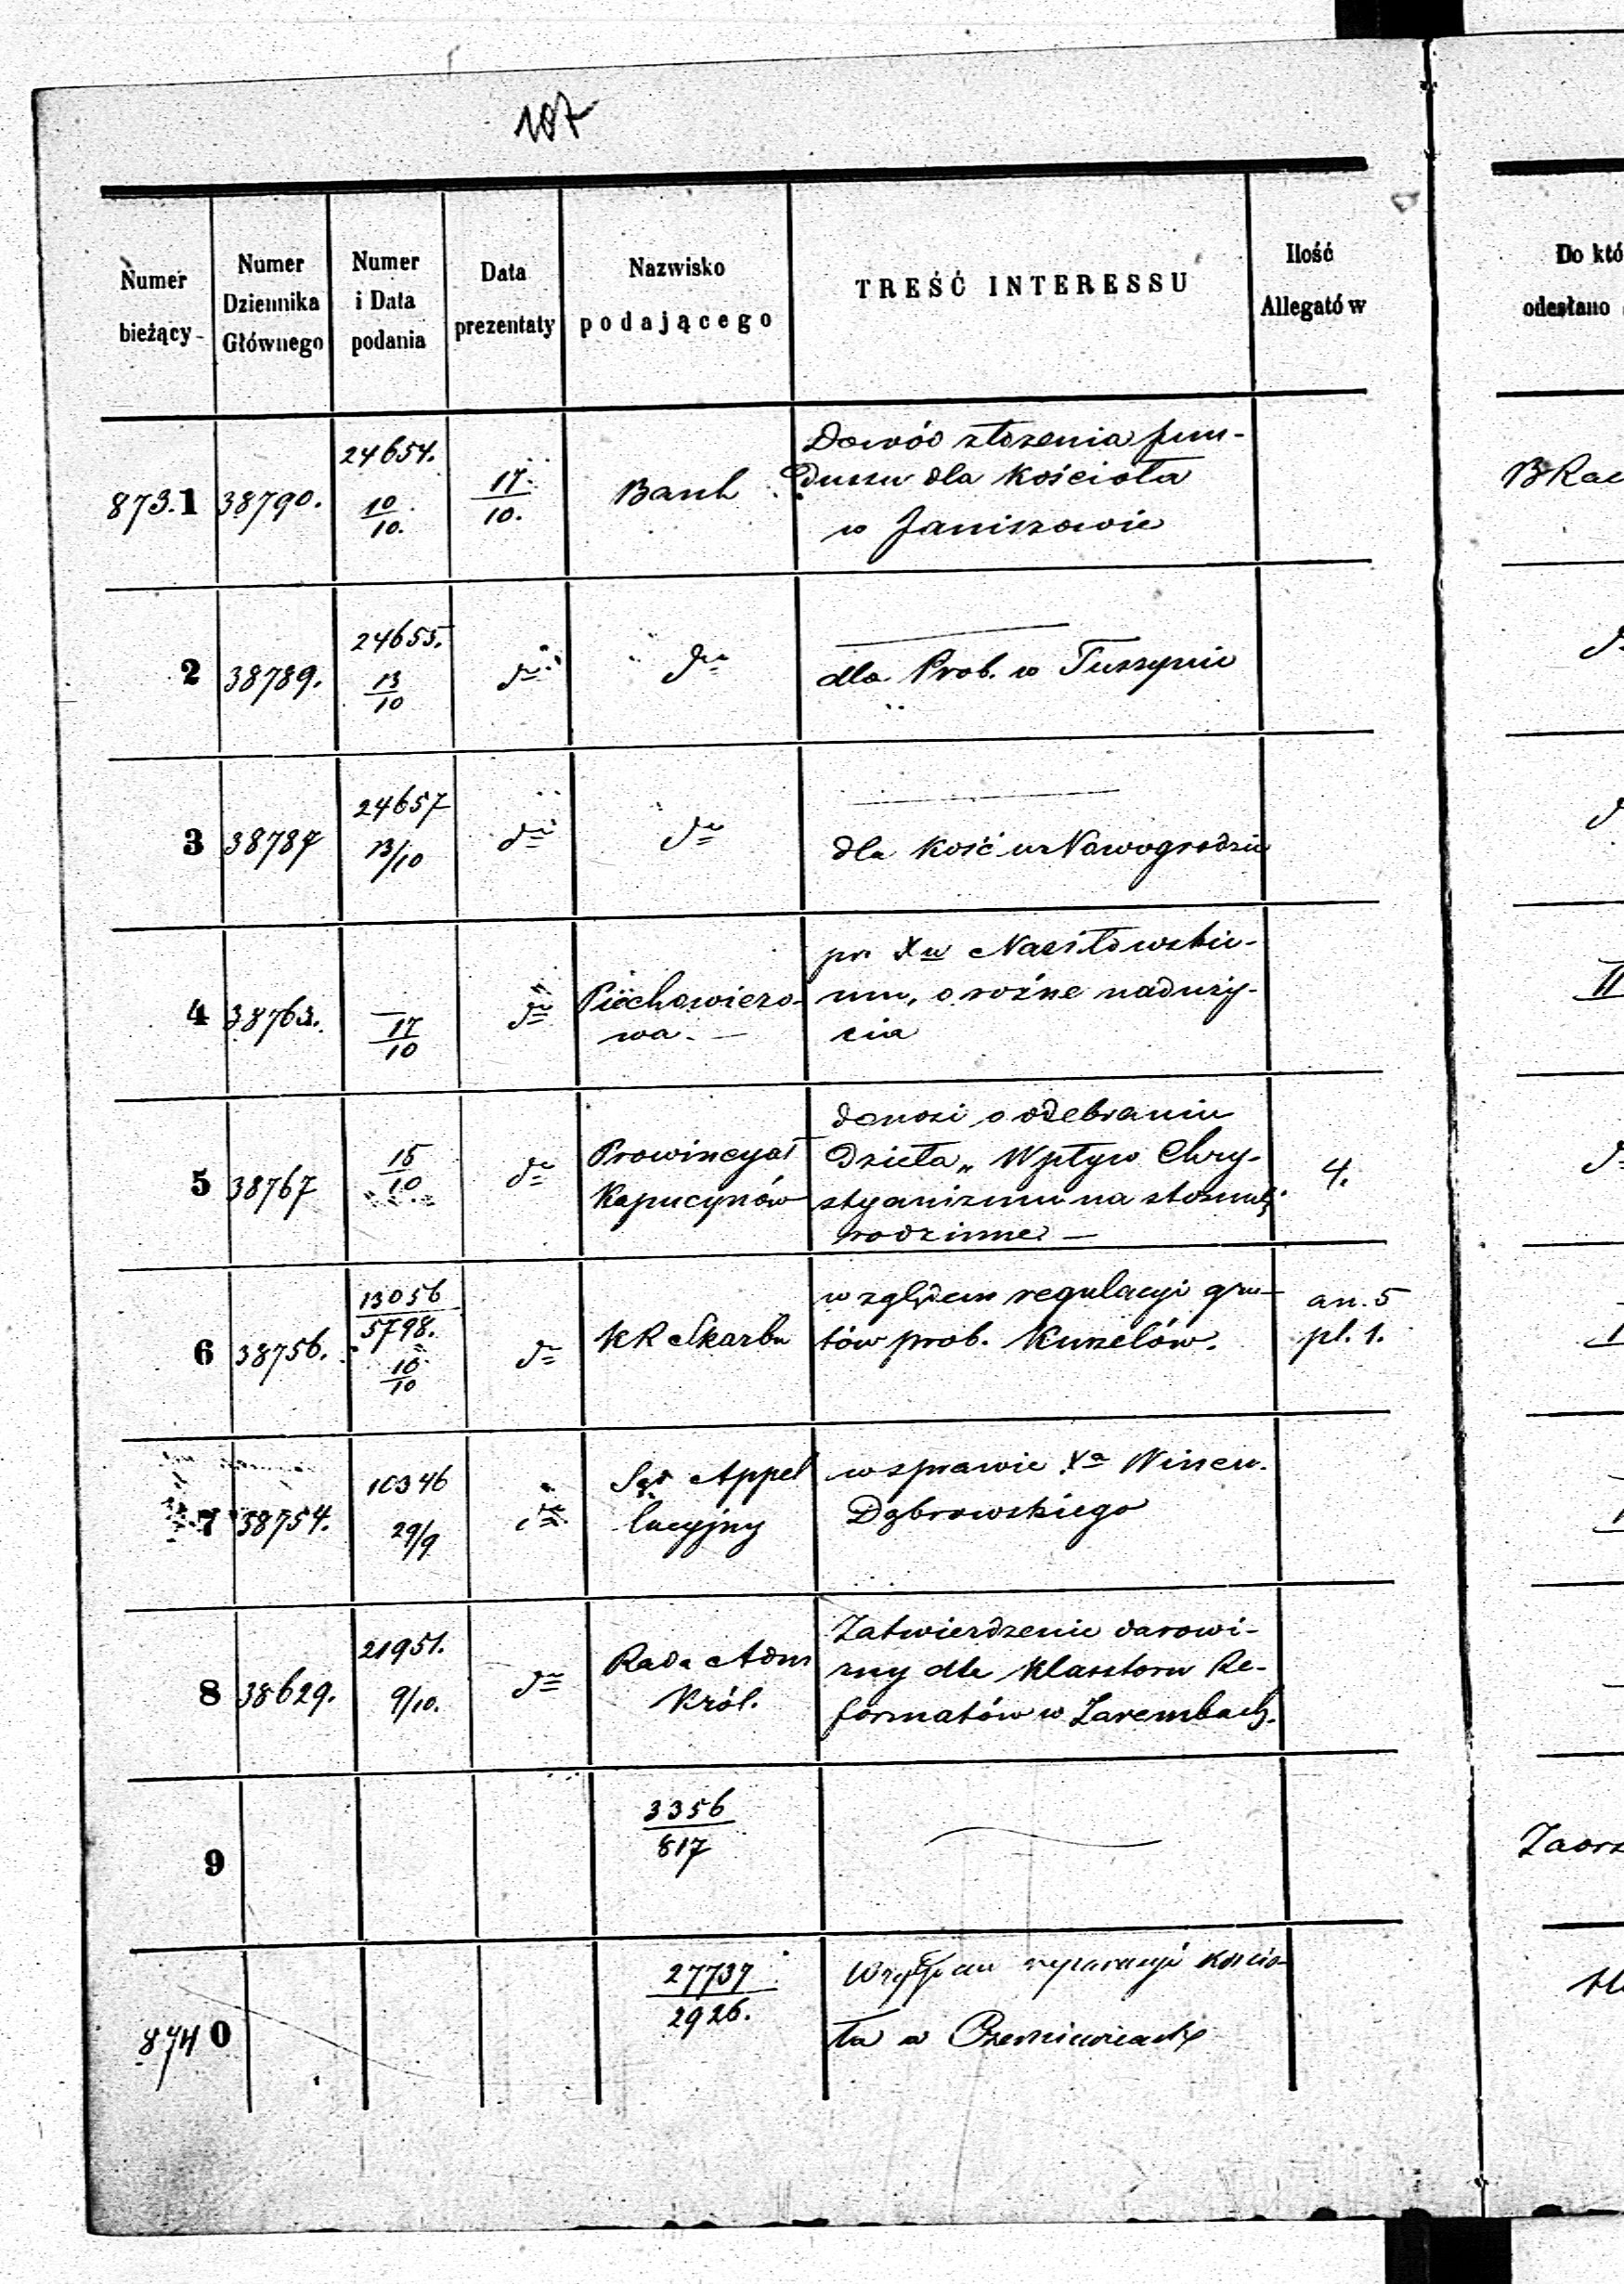 107
Numer bieżący
Numer Dziennika Głównego
Numer i Data podania
Data prezentaty
Nazwisko podającego
TREŚĆ INTERESSU
Ilość Allegatów
Do któ
odesłano
873.1 38790. 24654. 10/10. 17/10. Bank
Dowód złożenia fun-
duszu dla Kościoła
w Janiszowie
BRac
2 38789. 24655. 13/10 do do
dla Prob. w Tuszynie
3 38787 24657 13/10 do do
dla Kość w Nowogrodzie
4 38763. 17/10 do Piechowiczo-
wa. —
pr. Xu Nasiłowskie-
mu, o różne naduży-
cia
II
5 38767 15/10 do Prowincyał
Kapucynów
donosi o odebraniu
Dzieła „ Wpływ Chry-
styanizmu na stosunki
rodzinne —
4.
6 38756. 13056/5798. 16/10 do KR Skarbu
względem regulacyi grun-
tów prob. Kurzelów.
an. 5
pl. 1.
7 38754. 10346 29/9 do Sąd Appel
lacyjny
w sprawie Xa Wincen.
Dąbrowskiego
8 38629. 21951. 9/10. do Rada Adm
Król.
Zatwierdzenie darowi-
zny dla Klasztoru Re-
formatów w Zarembach.
9 3356/817
8740 27737/2926.
Względem reparacyi Kościo-
ła w